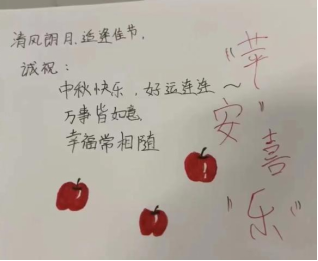 清风朗月,适逢佳节,
诚祝：
中秋快乐，好运连连～
万事皆如意,
幸福常相随
“苹
安”
喜
“乐”